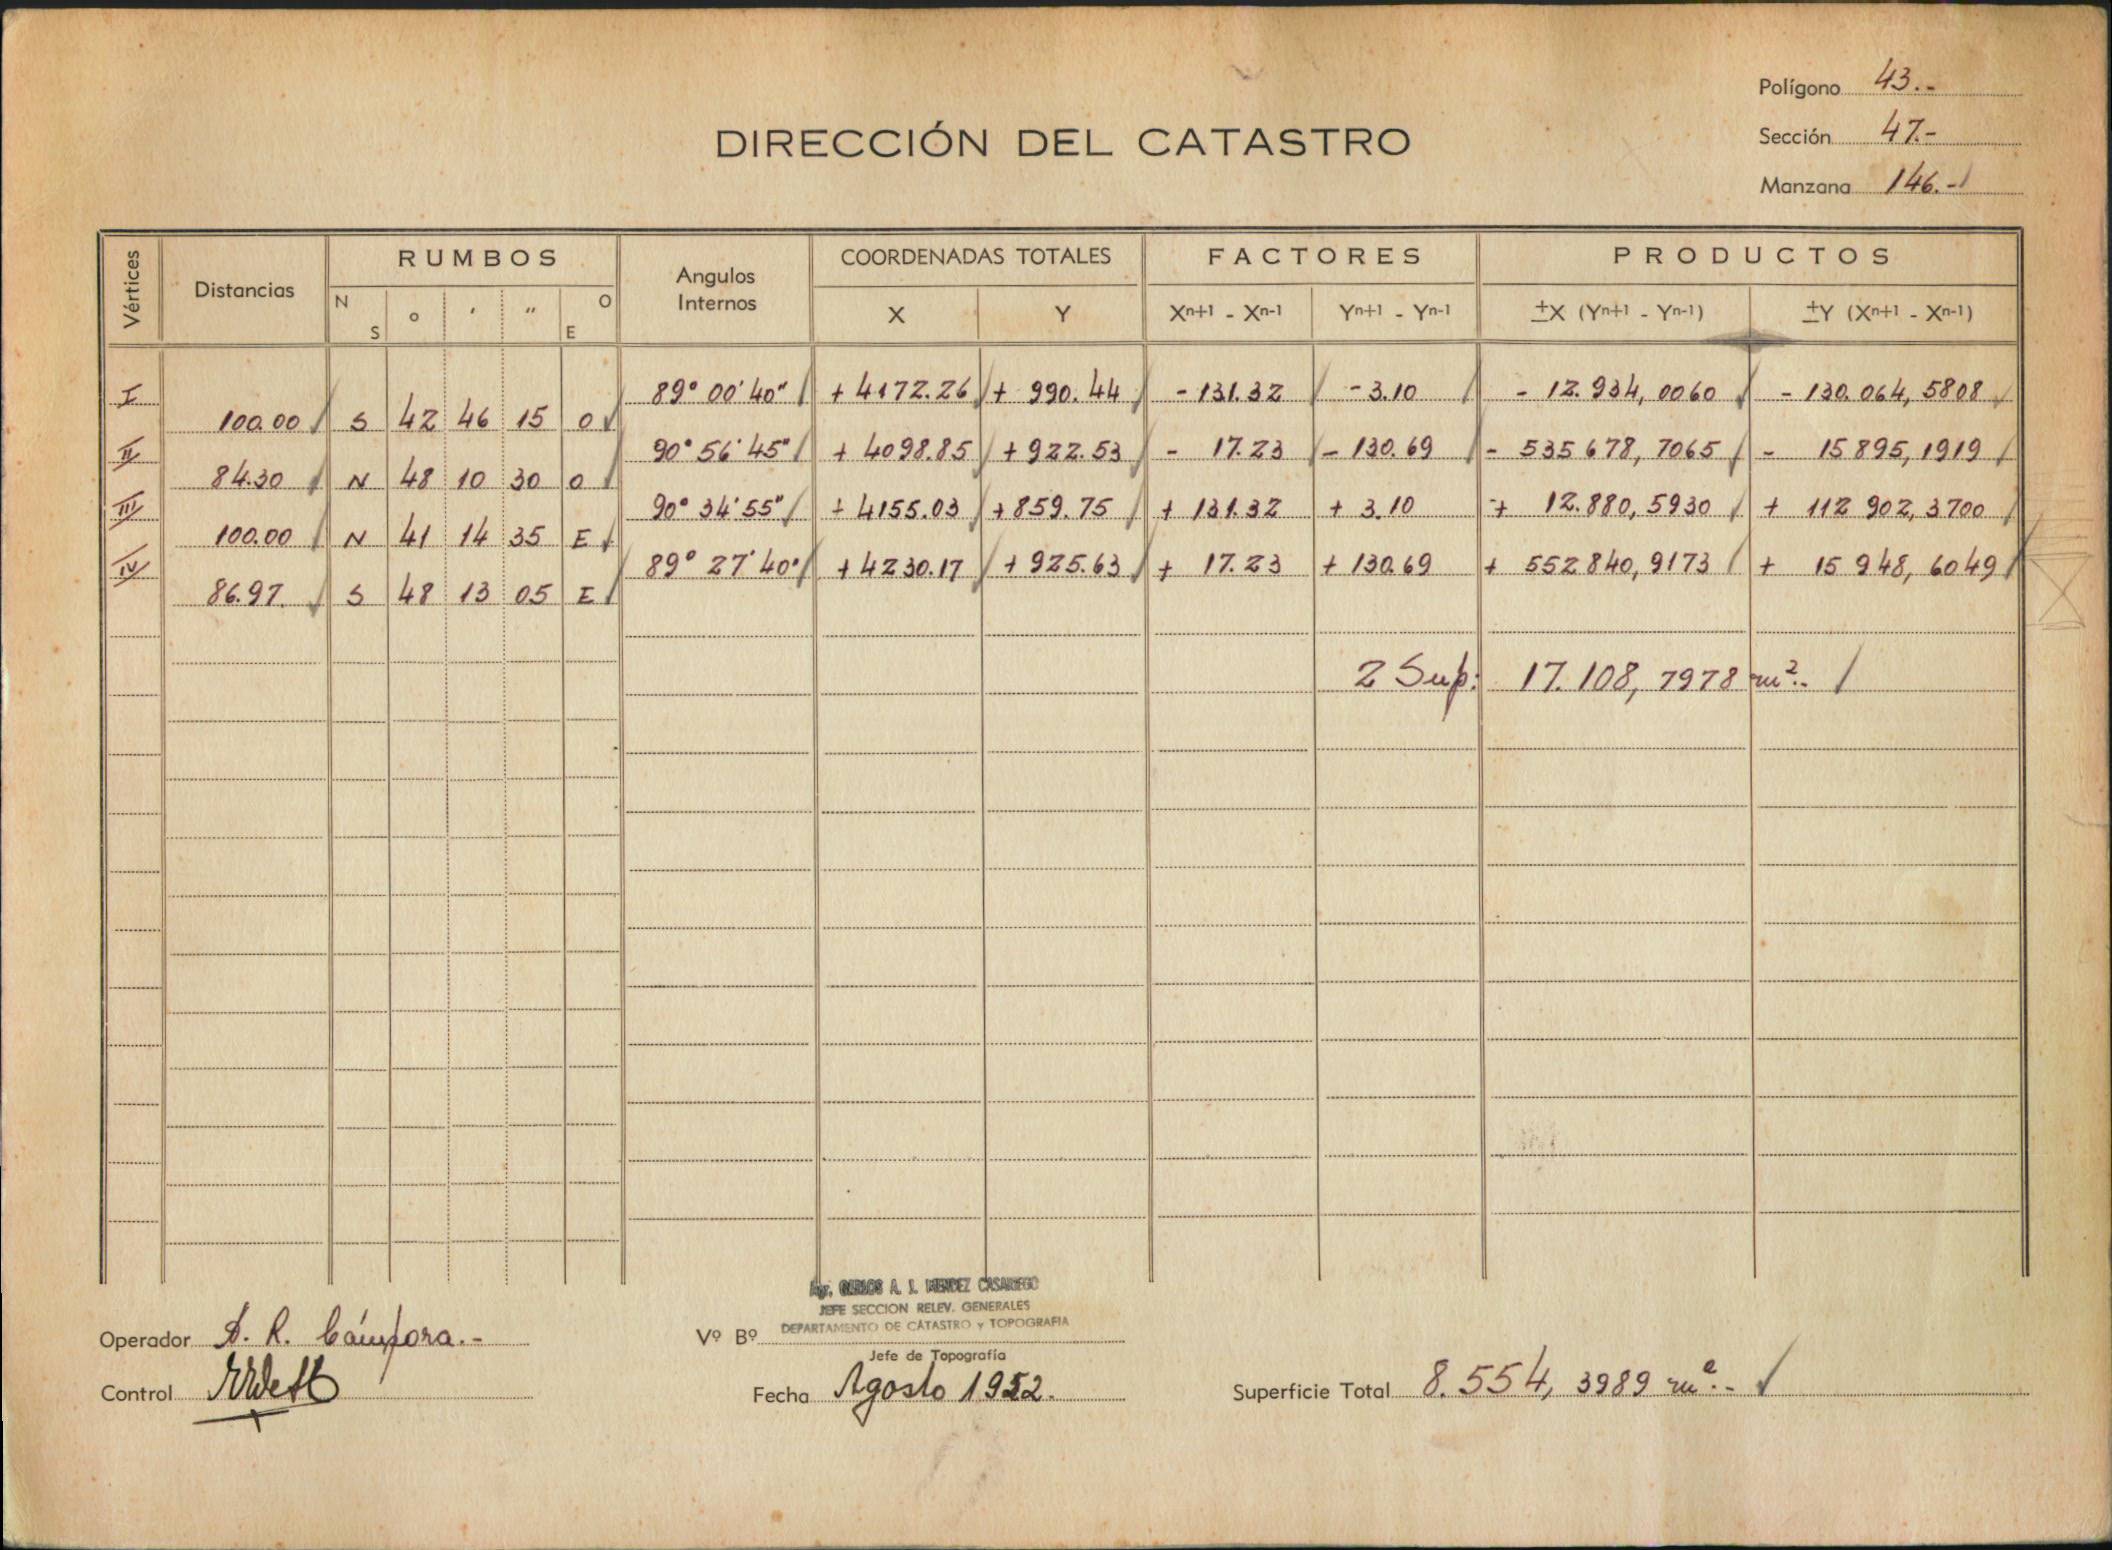 Polígono 43.-
DIRECCIÓN DEL CATASTRO
Sección 47.-
Manzana 146.-
Vértices Distancias RUMBOS Angulos Internos COORDENADAS TOTALES FACTORES PRODUCTOS
N S ° ' " O E X Y Xn+1 - Xn-1 Yn+1 - Yn-1 ±X (Yn+1 - Yn-1) ±Y (Xn+1 - Xn-1)
I 89° 00' 40" + 4172.26 + 990.44 - 131.32 - 3.10 - 12.934,0060 - 130.064,5808
100.00 S 42 46 15 O
II 90° 56' 45" + 4098.85 + 922.53 - 17.23 - 130.69 - 535678,7065 - 15895,1919
84.30 N 48 10 30 O
III 90° 34' 55" + 4155.03 + 859.75 + 131.32 + 3.10 + 12.880,5930 + 112902,3700
100.00 N 41 14 35 E
IV 89° 27' 40" + 4230.17 + 925.63 + 17.23 + 130.69 + 552840,9173 + 15948,6049
86.97 S 48 13 05 E
2 Sup: 17.108,7978 m².-
Agr. CARLOS A. J. MENDEZ CASARIEGO
JEFE SECCION RELEV. GENERALES
DEPARTAMENTO DE CATASTRO y TOPOGRAFIA
Operador A. R. Cámpora.-
Vº Bº
Jefe de Topografía
Control
Fecha Agosto 1952.
Superficie Total 8.554,3989 m².-